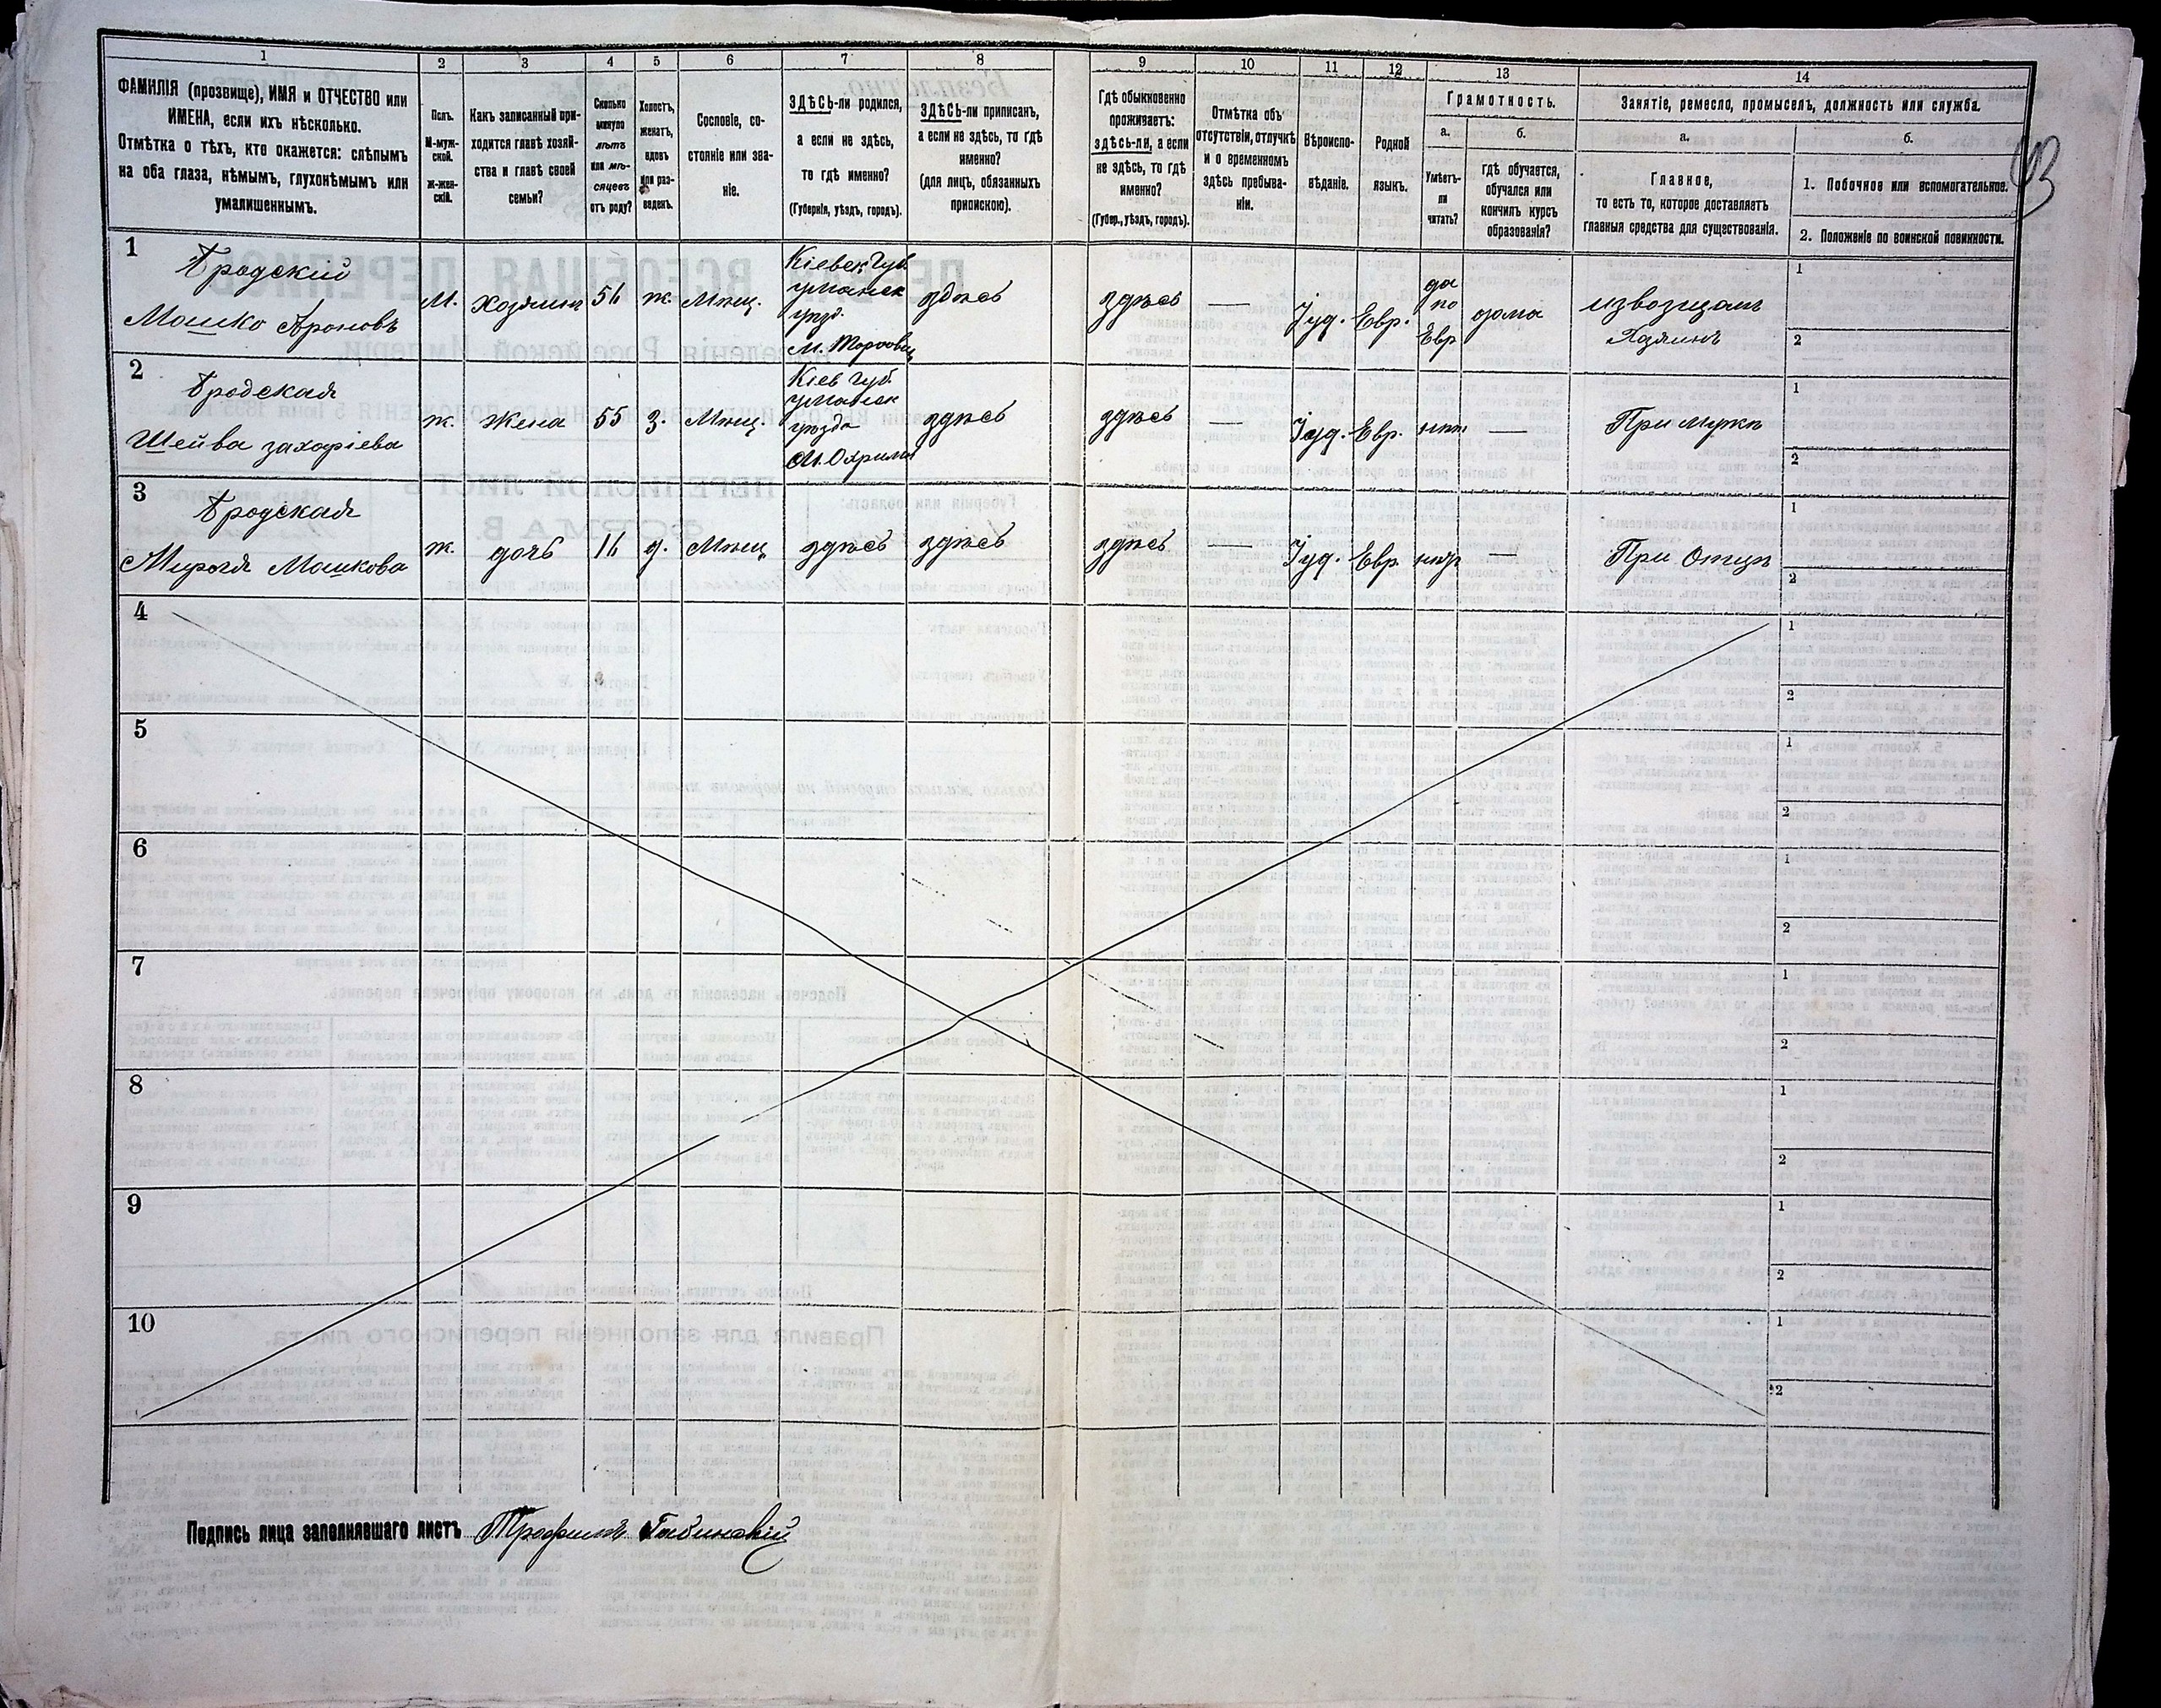 1
2
3
4
5
6
7
8
9
10
11
12
13
14
ФАМИЛІЯ (прозвище), ИМЯ и ОТЧЕСТВО или
ИМЕНА, если ихъ нѣсколько.
Отмѣтка о тѣхъ, кто окажется: слѣпымъ
на оба глаза, нѣмымъ, глухонѣмымъ или
умалишеннымъ.
Полъ.
М-муж-
ской.
Ж-жен-
скій.
Какъ записанный при-
ходится главѣ хозяй-
ства и главѣ своей
семьи?
Сколько
минуло
лѣтъ
или мѣ-
сяцевъ
отъ роду?
Холостъ,
женатъ,
вдовъ
или раз-
веденъ.
Сословіе, со-
стояніе или зва-
ніе.
ЗДѢСЬ-ли родился,
а если не здѣсь,
то гдѣ именно?
(Губернія, уѣздъ, городъ).
ЗДѢСЬ-ли приписанъ,
а если не здѣсь, то гдѣ
именно?
(для лицъ, обязанныхъ
припискою).
Гдѣ обыкновенно
проживаетъ:
здѣсь-ли, а если
не здѣсь, то гдѣ
именно?
(Губер., уѣздъ, городъ).
Отмѣтка объ
отсутствіи, отлучкѣ
и о временномъ
здѣсь пребыва-
ніи.
Вѣроиспо-
вѣданіе.
Родной
языкъ.
Грамотность.
а.
б.
Умѣетъ-
ли
читать?
гдѣ обучается,
обучался или
кончилъ курсъ
образованія?
Занятіе, ремесло, промыселъ, должность или служба.
а.
б.
Главное,
то есть то, которое доставляетъ
главныя средства для существованія.
1. Побочное или вспомогательное.
2. Положеніе по воинской повинности.
1
Бродскій
Мошко Ароновъ
М.
Хозяинъ
56
ж.
Мѣщ.
Кіевск Губ.
уманск
уѣзд.
здѣсь
здѣсь
—
Іуд.
Евр.
да
по
Евр
дома
извозщикъ
Хозяинъ
1
2
2
Бродская
Шейва захаріева
ж.
Жена
55
З.
Мѣщ.
Кіев Губ.
уманск
уѣзда
здѣсь
здѣсь
—
Іуд.
Евр.
нѣт
—
При мужѣ
1
2
3
Бродская
Мошкова
ж.
дочь
16
д.
Мѣщ
здѣсь
здѣсь
здѣсь
—
Іуд.
Евр.
нѣт
—
При Отцѣ
1
2
4
1
2
5
1
2
6
1
2
7
1
2
8
1
2
9
1
2
10
1
2
Подпись лица заполнявшаго листъ Трофимъ